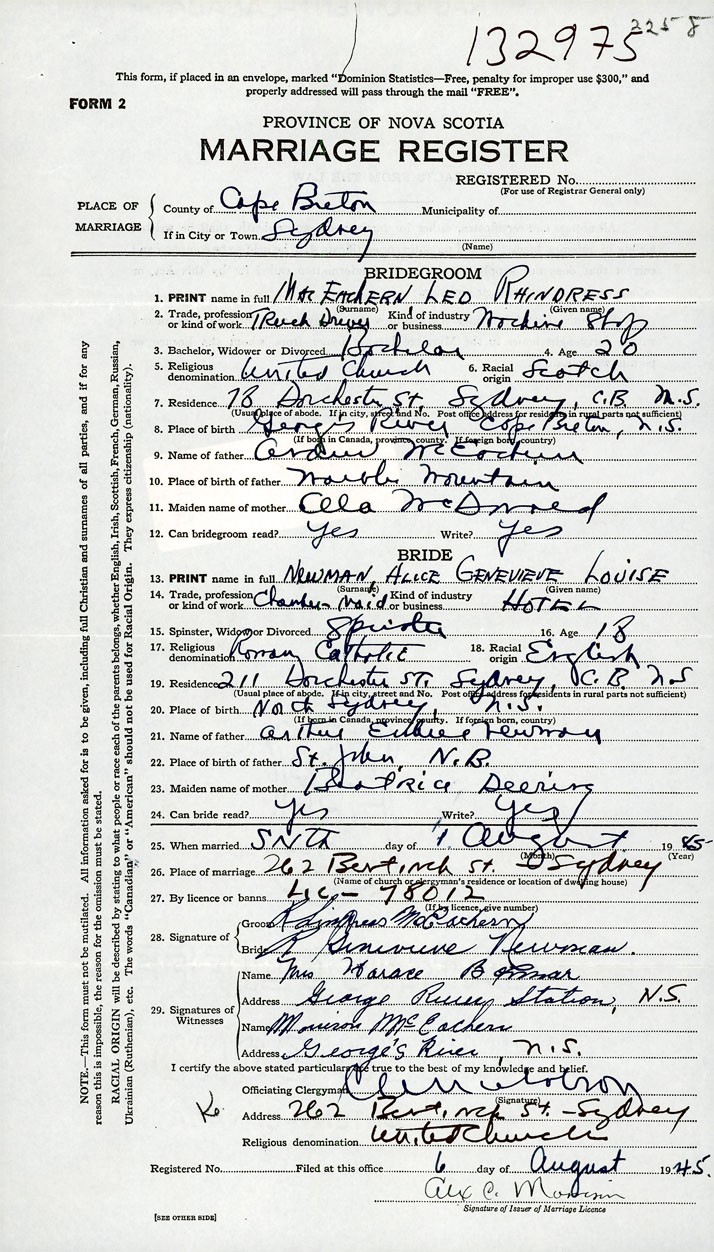 132975
2258
This form, if placed in an envelope, marked "Dominion Statistics—Free, penalty for improper use $300," and
properly addressed will pass through the mail "FREE".
FORM 2
PROVINCE OF NOVA SCOTIA
MARRIAGE REGISTER
REGISTERED No.
(For use of Registrar General only)
PLACE OF MARRIAGE
County of Cape Breton Municipality of
If in City or Town Sydney
(Name)
BRIDEGROOM
1. PRINT name in full MacEachern Leo Rhindress
(Surname) (Given name)
2. Trade, profession or kind of work Truck Driver Kind of industry or business Machine Shop
3. Bachelor, Widower or Divorced Bachelor 4. Age 20
5. Religious denomination United Church 6. Racial origin Scotch
7. Residence 78 Dorchester St. Sydney, C.B. N.S.
(Usual place of abode. If in city, street and No. Post office address for residents in rural parts not sufficient)
8. Place of birth Georges River Cape Breton, N.S.
(If born in Canada, province, county. If foreign born, country)
9. Name of father McEachern
10. Place of birth of father Marble Mountain
11. Maiden name of mother McDonald
12. Can bridegroom read? Yes Write? Yes
BRIDE
13. PRINT name in full Newman, Alice Genevieve Louise
(Surname) (Given name)
14. Trade, profession or kind of work Chamber-Maid Kind of industry or business Hotel
15. Spinster, Widow or Divorced Spinster 16. Age 18
17. Religious denomination Roman Catholic 18. Racial origin English
19. Residence 211 Dorchester St. Sydney, C.B. N.S
(Usual place of abode. If in city, street and No. Post office address for residents in rural parts not sufficient)
20. Place of birth North Sydney, N.S.
(If born in Canada, province, county. If foreign born, country)
21. Name of father Arthur Newman
22. Place of birth of father St. John, N.B.
23. Maiden name of mother Beatrice Deering
24. Can bride read? Yes Write? Yes
25. When married day of August 1945
(Month) (Year)
26. Place of marriage 262 Bentinck St. Sydney
(Name of church or clergyman's residence or location of dwelling house)
27. By licence or banns Lic- 78012
(If by licence, give number)
28. Signature of
Groom Rhindress McEachern
Bride Genevieve Newman.
29. Signatures of Witnesses
Name Mrs Horace
Address George River Station, N.S.
Name McEachern
Address George's River, N.S.
I certify the above stated particulars are true to the best of my knowledge and belief.
Officiating Clergyman
(Signature)
Address 262 Bentinck St.-Sydney
Religious denomination United Church
Registered No. Filed at this office 6 day of August 1945.
Alex C. Morrison
Signature of Issuer of Marriage Licence
[SEE OTHER SIDE]
NOTE.—This form must not be mutilated. All information asked for is to be given, including full Christian and surnames of all parties, and if for any
reason this is impossible, the reason for the omission must be stated.
RACIAL ORIGIN will be described by stating to what people or race each of the parents belongs, whether English, Irish, Scottish, French, German, Russian,
Ukrainian (Ruthenian), etc. The words "Canadian" or "American" should not be used for Racial Origin. They express citizenship (nationality).